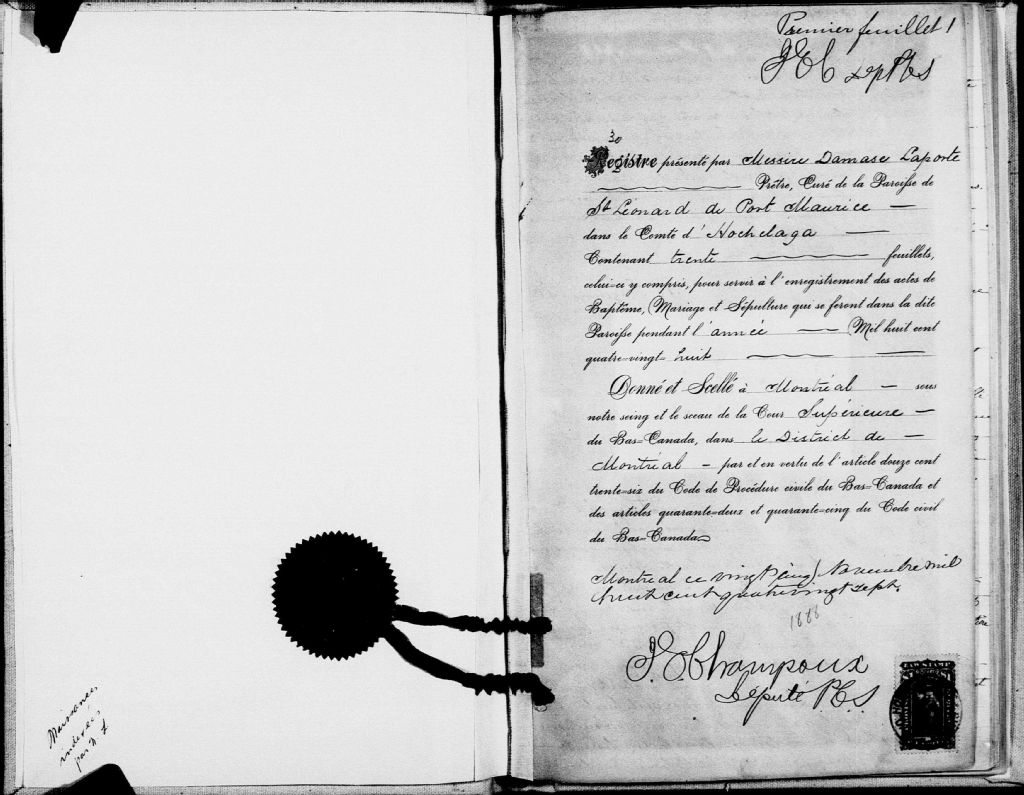 Naissances
indexées
par
Premier feuillet 1
J E C Dep P C S
30
Registre présenté par Messire Damase Laporte
Prêtre, Curé de la Paroisse de
St Léonard de Port Maurice —
dans le Comté d'Hochelaga —
Contenant trente — feuillets,
celui=ci y compris, pour servir à l'enregistrement des actes de
Baptême, Mariage et Sépulture qui se feront dans la dite
Paroisse pendant l'année — Mil huit cent
quatre=vingt- huit —
Donné et Scellé à Montréal — sous
notre seing et le sceau de la Cour Supérieure —
du Bas=Canada, dans le District de —
Montréal — par et en vertu de l'article douze cent
trente=six du Code de Procédure civile du Bas=Canada et
des articles quarante=deux et quarante=cinq du Code civil
du Bas=Canada
Montréal ce vingt cinq Novembre mil
huit cent quatrevingt sept.
1888
J. E. Champoux
Député P.C.S
LAW STAMP